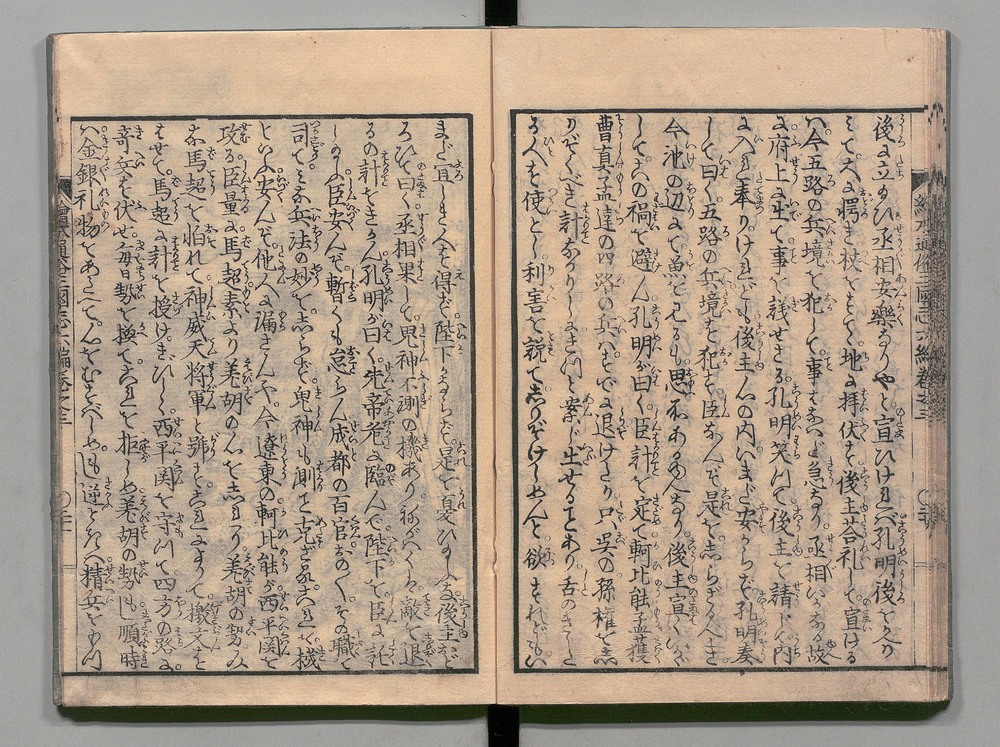 後に立給ひ丞相安樂なりやと宣ひければ孔明後をかへり
みて大に愕き杖をすてゝ地に拝伏す後主答礼して宣ける
ハ今五路の兵境を犯して事はなはだ急なり丞相いかなる故
に府上に在て事を議せざる孔明笑ひて後主を請じ内
に入奉りけれども後主心の内いまだ安からず孔明奏
して曰く五路の兵境を犯す臣なんぞ是をしらざらんさき
今池の辺にて魚をみるも思ふ所あるゆへなり後主宣く
して此禍を避ん孔明が曰く臣計を定て軻比能孟獲
曹真孟達の四路の兵ハすでに退けたり只呉の孫権を
りぞくべき計なかりしにきハと案じ出せることあり舌のきゝし
る人を使とし利害を説てしりぞけしめんと欲すれども
まだ宜しき人を得ず陛下かならず是を憂ひ給ふな後主
ろひて曰く丞相果して鬼神不測の機あり敵を退
るの計をきかん孔明が曰く先帝危に臨んで陛下を臣に託
し給ふ臣安んぞ暫くも怠らん成都の百官おのくその職を
司て兵法の妙をしらず鬼神も測こと克ざる處を機
といふ安んぞ他人に漏さんや今遼東の軻比能が西平関を
攻る臣量に馬超素より羌胡の心をしれり羌胡の勢み
な馬超を怕れて神威天将軍と號すこれによりて檄文を
はせて馬超に計を授けきびしく西平関を守りて四方の路に
奇兵を伏せ毎日勢を換てこれを拒しめ羌胡の勢もし順時
ハ金銀礼物をあたへて心をむすぶべしもし逆ときハ精兵をもつ
繪本通俗三國志六編巻之三
繪本通俗三國志六編巻之三